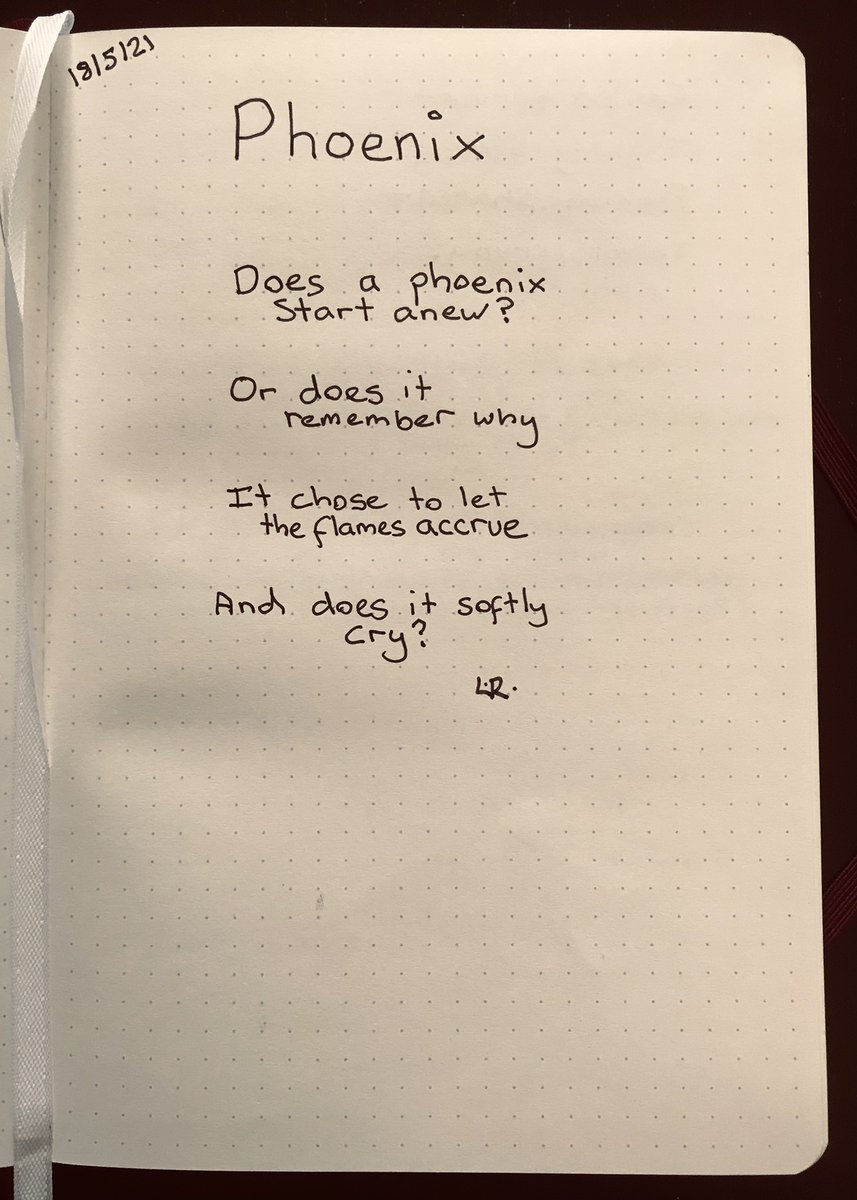 18/5/21
Phoenix
Does a phoenix
Start anew?
Or does it
remember why
It chose to let
the flames accrue
And does it softly
cry?
L.R.